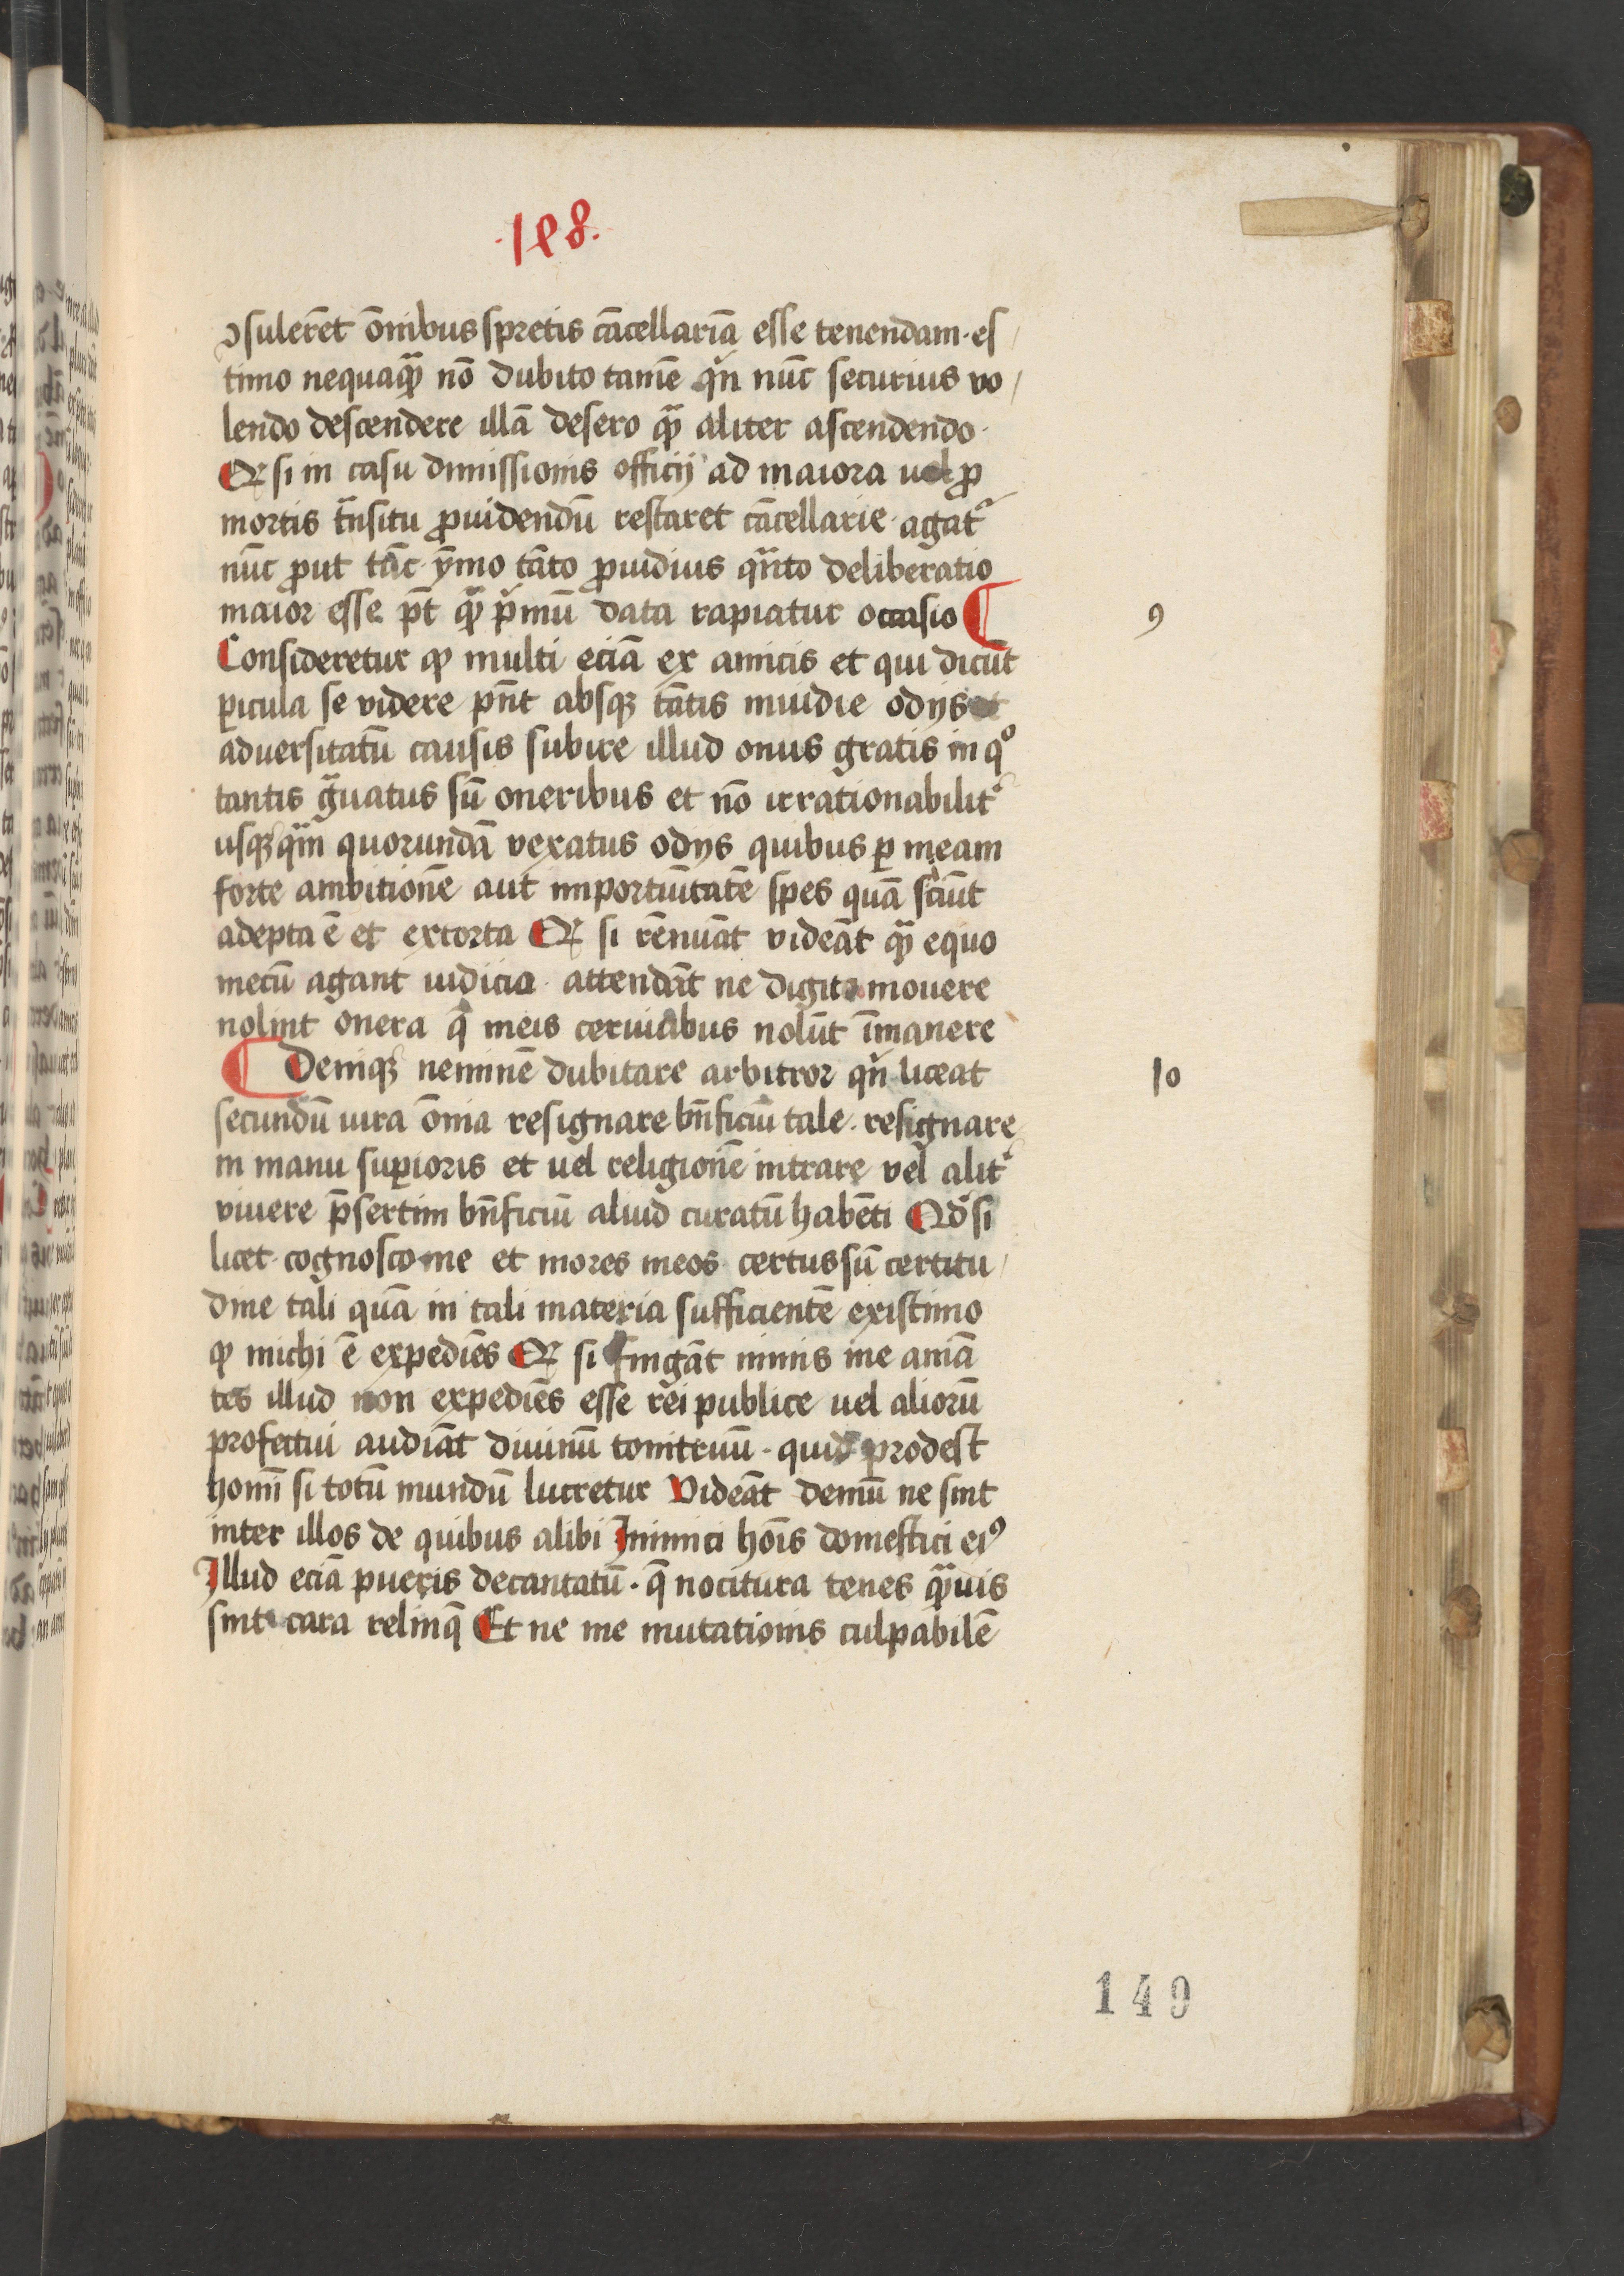 .148.
ꝯsulerēt ōnibus spretis cācellariā esse tenendam · es
timo nequaqͣꝫ nō dubito tamē qͥn nūc securius vo
lendo descendere illā desero qͣꝫ aliter ascendendo ·
Et si in casu dimissionis officij ad maiora uel ꝓ
mortis tͣnsitu ꝓuidendū restaret cācellarie · agatᷣ
nūc ꝓut tūc · ymo tāto ꝓuidius qͣnto deliberatio
maior esse pt̄ qͣꝫ pͥmū data rapiatur occasio ¶
9
Consideretur ꝙ multi eciā ex amicis et qui dicūt
ꝑicula se videre pn̄t absqꝫ tātis inuidie odijs et
aduersitatū causis subire illud onus gratis in qͦ
tantis gͣuatus sū oneribus et nō irrationabilitᷣ
usqꝫqͣm quorundā vexatus odijs quibus ꝑ meam
forte ambitionē aut importūitatē spes quā sciūt
adepta ē et extorta Et si rēnuāt videāt qͣꝫ equo
mecū agant iudicio · attendāt ne digito mouere
nolint onera q̄ meis ceruicibus nolūt īmanere
¶ Deniqꝫ neminē dubitare arbitror qͥn liceat
10
secundū iura ōnia resignare bn̄ficiū tale · resignare
in manu suꝑioris et uel religionē intrare vel alitᷣ
viuere p̄sertim bn̄ficiū aliud curatū habēti Qd̓ si
licet · cognosco me et mores meos certus sū certitu
dine tali quā in tali materia sufficientē existimo
ꝙ michi ē expediēs Et si fingāt nimis me amā
tes illud non expediēs esse rei publice uel aliorū
profectui audiāt diuinū tonitruū · quid prodest
homī si totū mundū lucretur Videāt demū ne sint
inter illos de quibus alibi Inimici hoīs domestici eiꝰ
Illud eciā pueris decantatū · q̄ nocitura tenes qͣꝫuis
sint cara relinq̄ Et ne me mutationis culpabilē
149